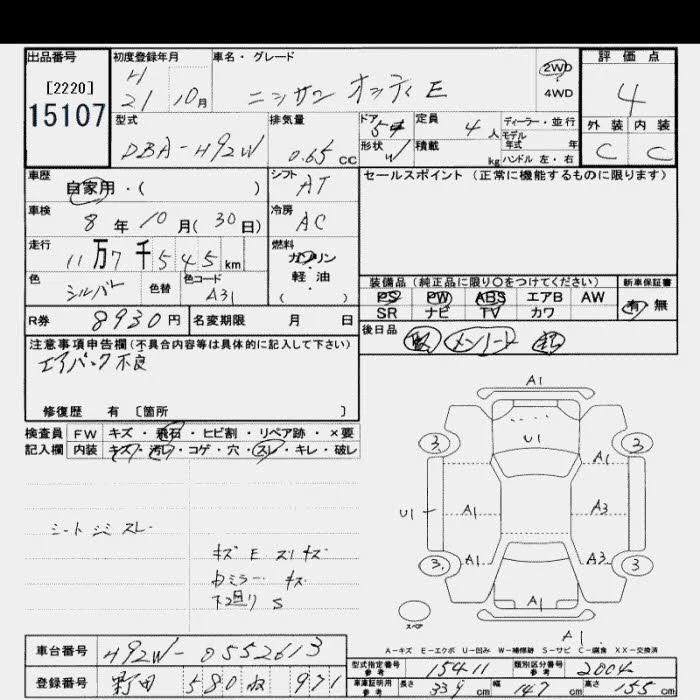 出品番号
[2220]
15107
初度登録年月
H 21 10月
車名・グレード
ニッサン オッティ E
2WD
4WD
評価点
4
外装 内装
C C
型式
DBA-H92W
排気量
0.65 CC
ドア
5
形状
W
定員
4人
積載
kg
ディーラー・並行
モデル年式 年
ハンドル 左・右
車歴
自家用・( )
シフト
AT
セールスポイント (正常に機能するものに限ります)
車検
8年10月(30日)
冷房
AC
走行
11万7千545km
燃料
ガソリン
軽・油
( )
色
シルバー
色替
色コード
A31
装備品(純正品に限り○をつけてください)
新車保証書
PS PW ABS エアB AW
SR ナビ TV カワ
有 無
R券
8930円
名変期限 月 日
後日品
注意事項申告欄(不具合内容等は具体的に記入して下さい)
エアバック不良
修復歴 有 〔箇所 〕
検査員
記入欄
FW キズ・飛石・ヒビ割・リペア跡・×要
内装 キズ・汚レ・コゲ・穴・スレ・キレ・破レ
シート シミ スレ
キズ E スリキズ
カミラー キズ
下廻り S
A1
U1
3
3
A1
U1
A1
A3
A1
A3
3
3
A1
スペア
A1
A-キズ E-エクボ U-凹み W-補修跡 S-サビ C-腐食 XX-交換済
車台番号
H92W-0552613
登録番号
野田 580 ね 971
型式指定番号
参考
15411
類別区分番号
参考
2004
車庫証明用
参考
長さ 339 cm
幅 147 cm
高さ 155 cm